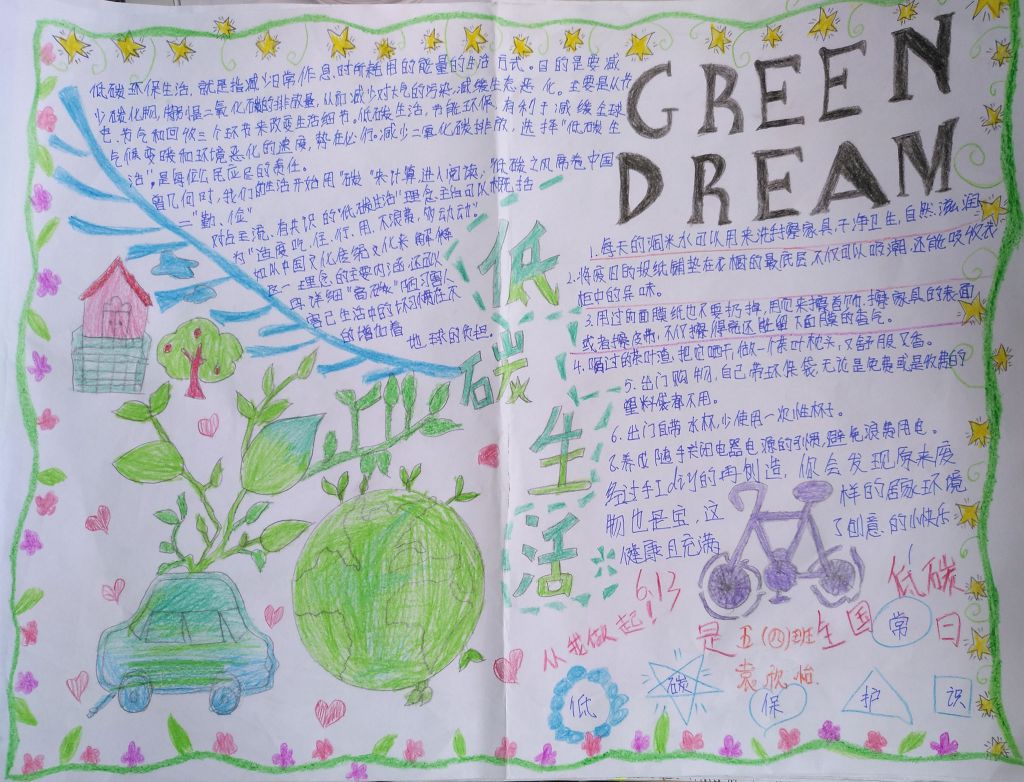 GREEN
DREAM
低碳环保生活，就是指减少日常作息时所耗用的能量的生活方式。目的是要减
少碳化物，特别是二氧化碳的排放量，从而减少对大气的污染，减缓生态恶化。主要是从节
电、节气和回收三个环节来改变生活细节。低碳生活，节能环保，有利于减缓全球
气候变暖和环境恶化的速度，势在必行。减少二氧化碳排放，选择"低碳生
活"，是每位公民应尽的责任。
曾几何时，我们的生活开始用"碳"来计算进入阅读，低碳之风席卷中国
对占主流、有共识的"低碳生活"理念
为"适度吃、住、行、用，不浪费，多动动"。
如从中国文化传统文化来解释
这一理念的主要内涵还可以
再详细
害己生活中的坏习惯
地球的负担。
低
碳
生
活
1.每天的泔米水可以用来洗手擦家具，干净卫生，自然滋润
2.将废旧的报纸铺垫在衣橱的最底层，不仅可以吸潮，还能吸收衣
柜中的异味。
3.用过的面膜纸也不要扔掉，用它来擦首饰、擦家具的表面
或者擦皮带，不仅擦得亮还能留下面膜的香气。
4.喝过的茶叶渣，把它晒干，做一个茶叶枕头，又舒服又香。
5.出门购物，自己带环保袋，无论是免费或是收费的
塑料袋都不用。
6.出门自带水杯，少使用一次性杯子。
6.养成随手关闭电器电源的习惯，避免浪费用电。
经过手工diy的再创造，你会发现原来废
物也是宝，这样的居家环境
健康且充满了创意的小快乐。
6.13 是全国低碳日
从我做起！
五（四）班
袁欣怡
低 碳 保 护 常 识